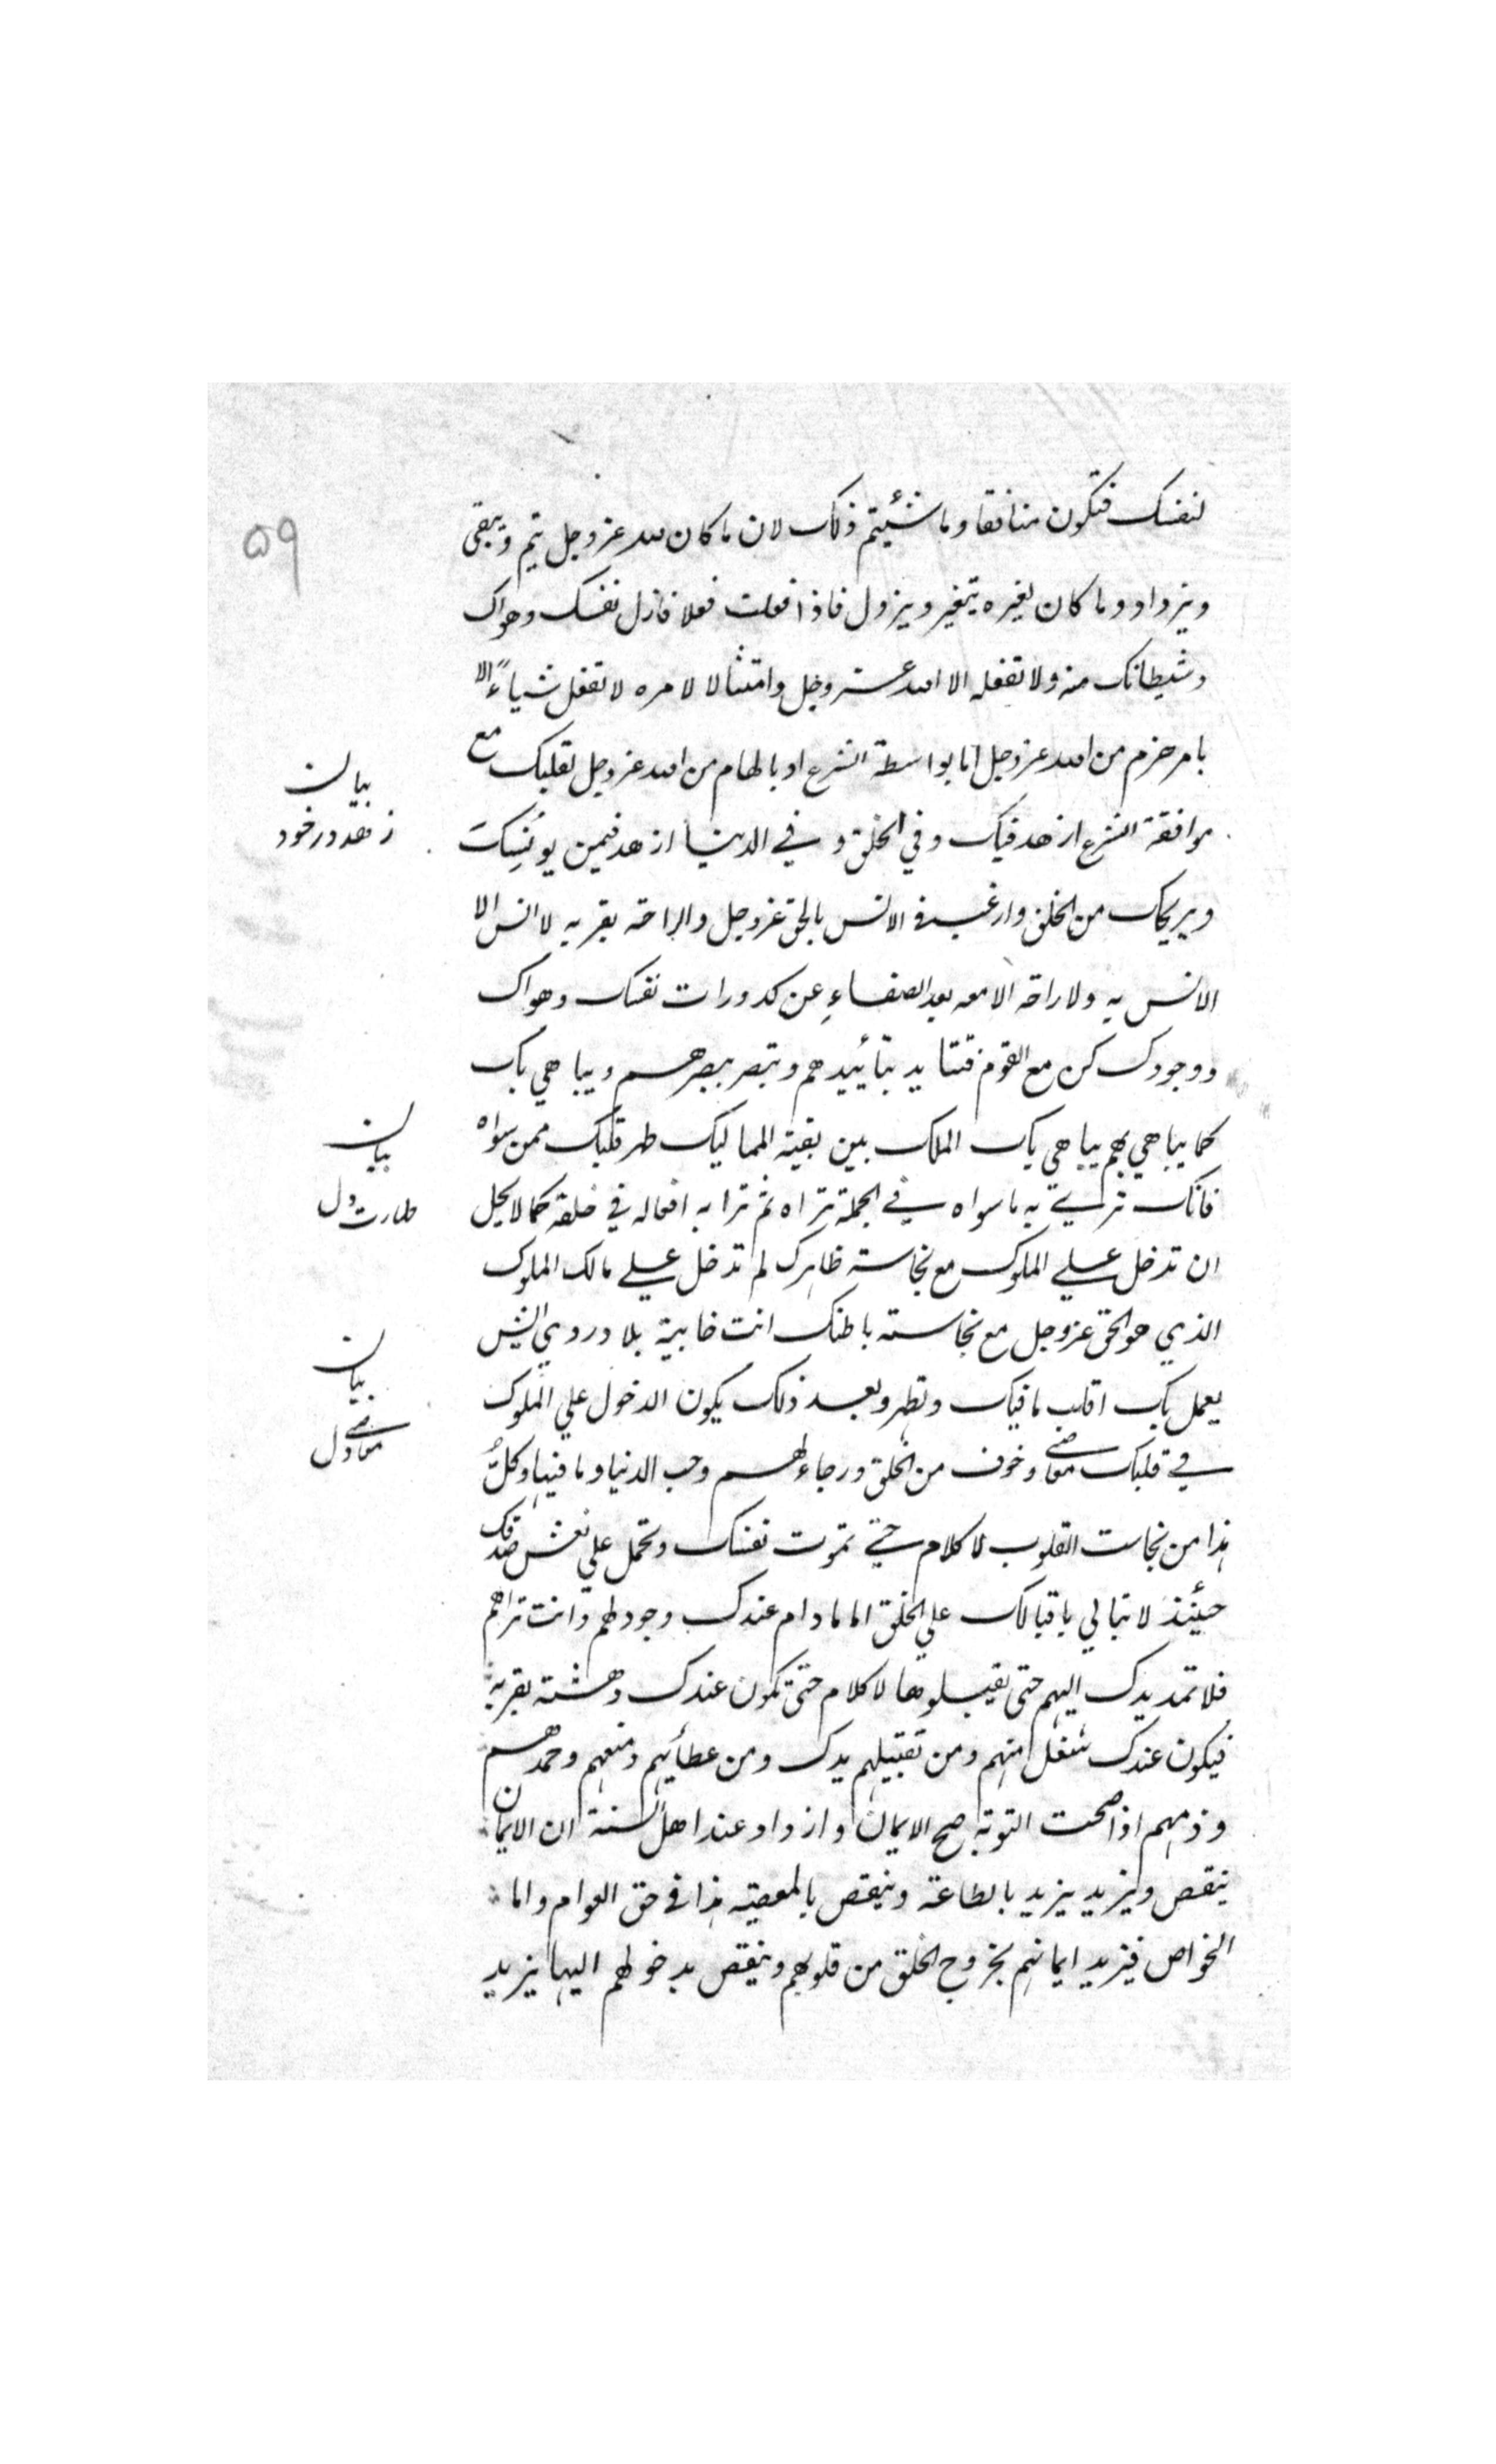 لنفسك فتكون منافقا وما شئيتم ذلك لان ما كان لله عزوجل يتم ويبقى
۵۹
ويزداد وما كان لغيره يتغير ويزول فاذا فعلت فعلا فازل نفسك وهواك
وشيطانك منه ولا تفعله الا الله عزوجل وامتثالا لامره لا تفعل شياءً الا
بامر جزم من الله عزوجل اما بواسطة الشرع او بالهام من الله عزوجل لقلبك مع
بيان
موافقة الشرع ازهد فيك وفي الخلق و في الدنيا ازهد فيمن يونسك
زهد در خود
ويريحك من الخلق وارغب في الانس بالحق عزوجل والراحة بقربه لا انس الا
الانس به ولا راحة الا معه بعد الصفاء عن كدورات نفسك وهواك
ووجودك كن مع القوم فتتايد بتأييدهم وتبصر ببصرهم ويباهي بك
كما يباهي بهم يباهي بك الملك بين بقية المماليك طهر قلبك ممن سواه
بيان
فانك تري به ما سواه في الجملة تراه ثم ترا به افعاله في خلقه كما لا يحل
طهارت دل
ان تدخل علي الملوك مع نجاسة ظاهرك لم تدخل علي مالك الملوك
الذي هو الحق عزوجل مع نجاسته باطنك انت خابية بلا دردي ايش
بيان
يعمل بك اقلب ما فيك وتطهر وبعد ذلك يكون الدخول علي الملوك
معاصي دل
في قلبك معاصي وخوف من الخلق ورجاء لهم وحب الدنيا وما فيها وكلُّ
هذا من نجاست القلوب لا كلام حتي تموت نفسك وتحمل علي نعش صدقك
حينئذ لا تبالي باقبالك علي الخلق اما ما دام عندك وجود لهم وانت تراهم
فلا تمد يدك اليهم حتى يقبلوها لا كلام حتى تكون عندك دهشة بقربه
فيكون عندك شغل منهم ومن تقبيلهم يدك ومن عطائهم ومنعهم وحمدهم
وذمهم اذا صحت التوبة صح الايمان وازداد عند اهل السنة ان الايمان
ينقص ويزيد يزيد بالطاعة وينقص بالمعصيه هذا في حق العوام واما
الخواص فيزيد ايمانهم بخروج الخلق من قلوبهم وينقص بدخولهم اليها يزيد